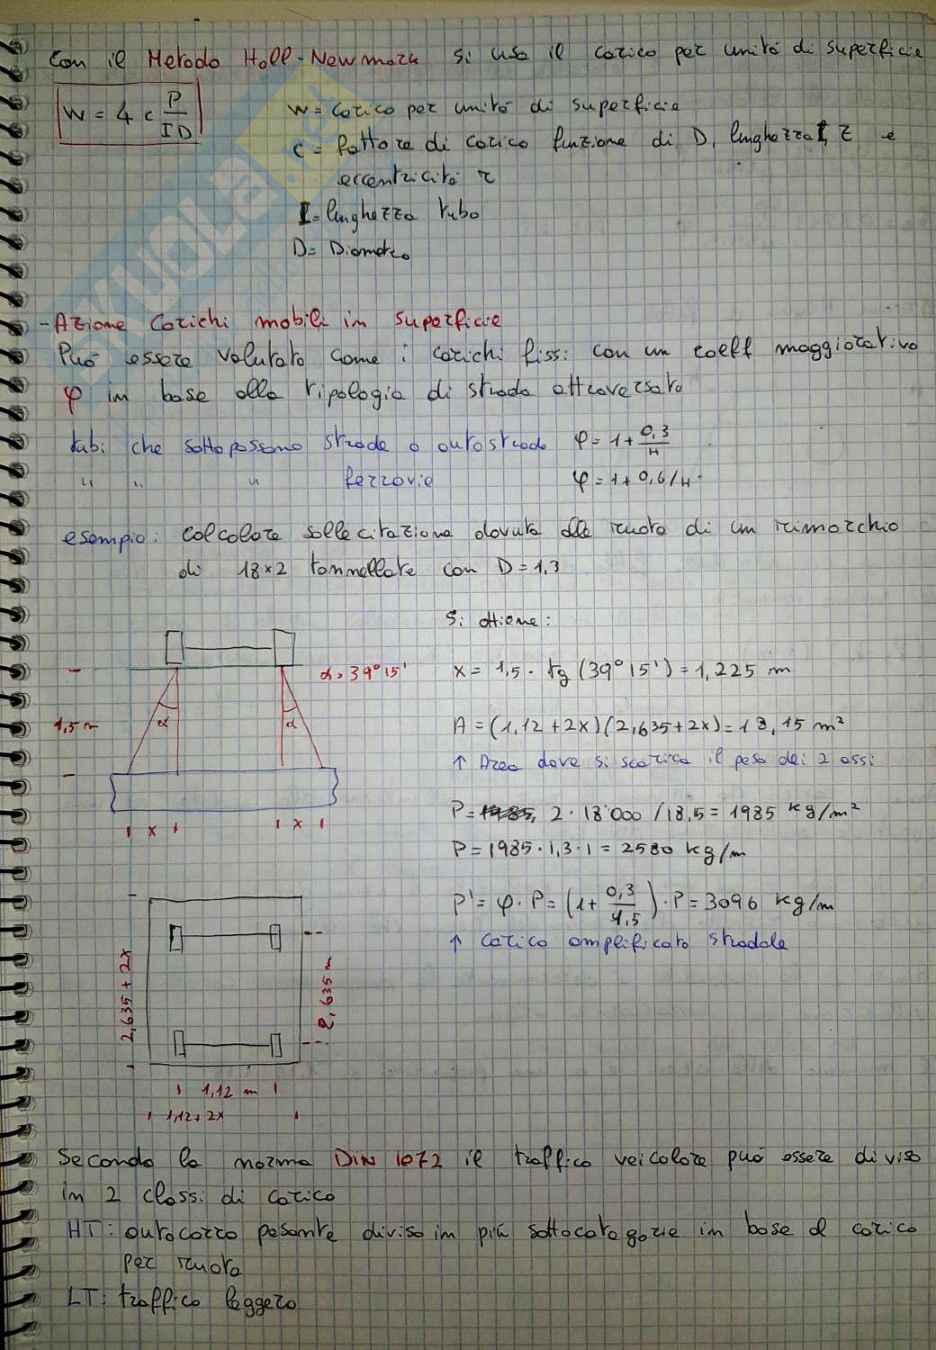 Con il Metodo Holl-Newmark si usa il carico per unità di superficie
W = 4 c P / I D
W = carico per unità di superficie
c = fattore di carico funzione di D, lunghezza I, Z e
eccentricità r
I = lunghezza tubo
D = Diametro
- Azione Carichi mobili in superficie
Può essere valutato come i carichi fissi con un coeff maggiorativo
φ in base alla tipologia di strada attraversata
tubi che sottopassano strade o autostrade φ = 1 + 0,3 / H
" " " ferrovie φ = 1 + 0,6/H
esempio: calcolare sollecitazione dovuta alla ruota di un rimorchio
di 18×2 tonnellate con D = 1,3
Si ottiene:
α = 39° 15'
x = 1,5 · tg (39° 15') = 1,225 m
1,5 m
α α
A = (1,12 + 2x)(2,635 + 2x) = 18,15 m²
↑ Area dove si scarica il peso dei 2 assi
P = 2 · 18'000 / 18,5 = 1985 kg/m²
P = 1985 · 1,3 · 1 = 2580 kg/m
x x
P' = φ · P = (1 + 0,3 / 1,5) · P = 3096 kg/m
↑ carico amplificato stradale
2,635 + 2x
2,635 m
1,12 m
1,12 + 2x
Secondo la norma DIN 1072 il traffico veicolare può essere diviso
in 2 classi di carico
HT: autocarro pesante diviso in più sottocategorie in base al carico
per ruota
LT: traffico leggero
SKUOLA